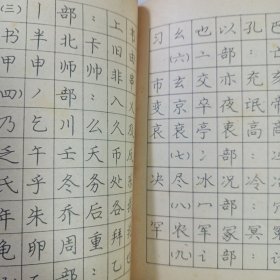 (三) 丨 部 : 上
书 半 北 卡 旧
甲 申 帅 非
(四) 丿 部 : 入
乃 乞 川 么 久
乏 午 壬 夭 币 反
氏 乎 冬 务 处
年 朱 乔 后 各
龟 卵 周 重 拜
部 : 乙
习 幺 也 以 孔 巴
(六) 亠 部 : 亡
市 玄 交 亦 充
变 京 卒 夜 氓
哀 亭 衷 高
(七) 冫 部 :
决 尽 冰 况 冷
(八) 冖 部 :
罕 农 军 冢 冥
(九) 讠 部 :